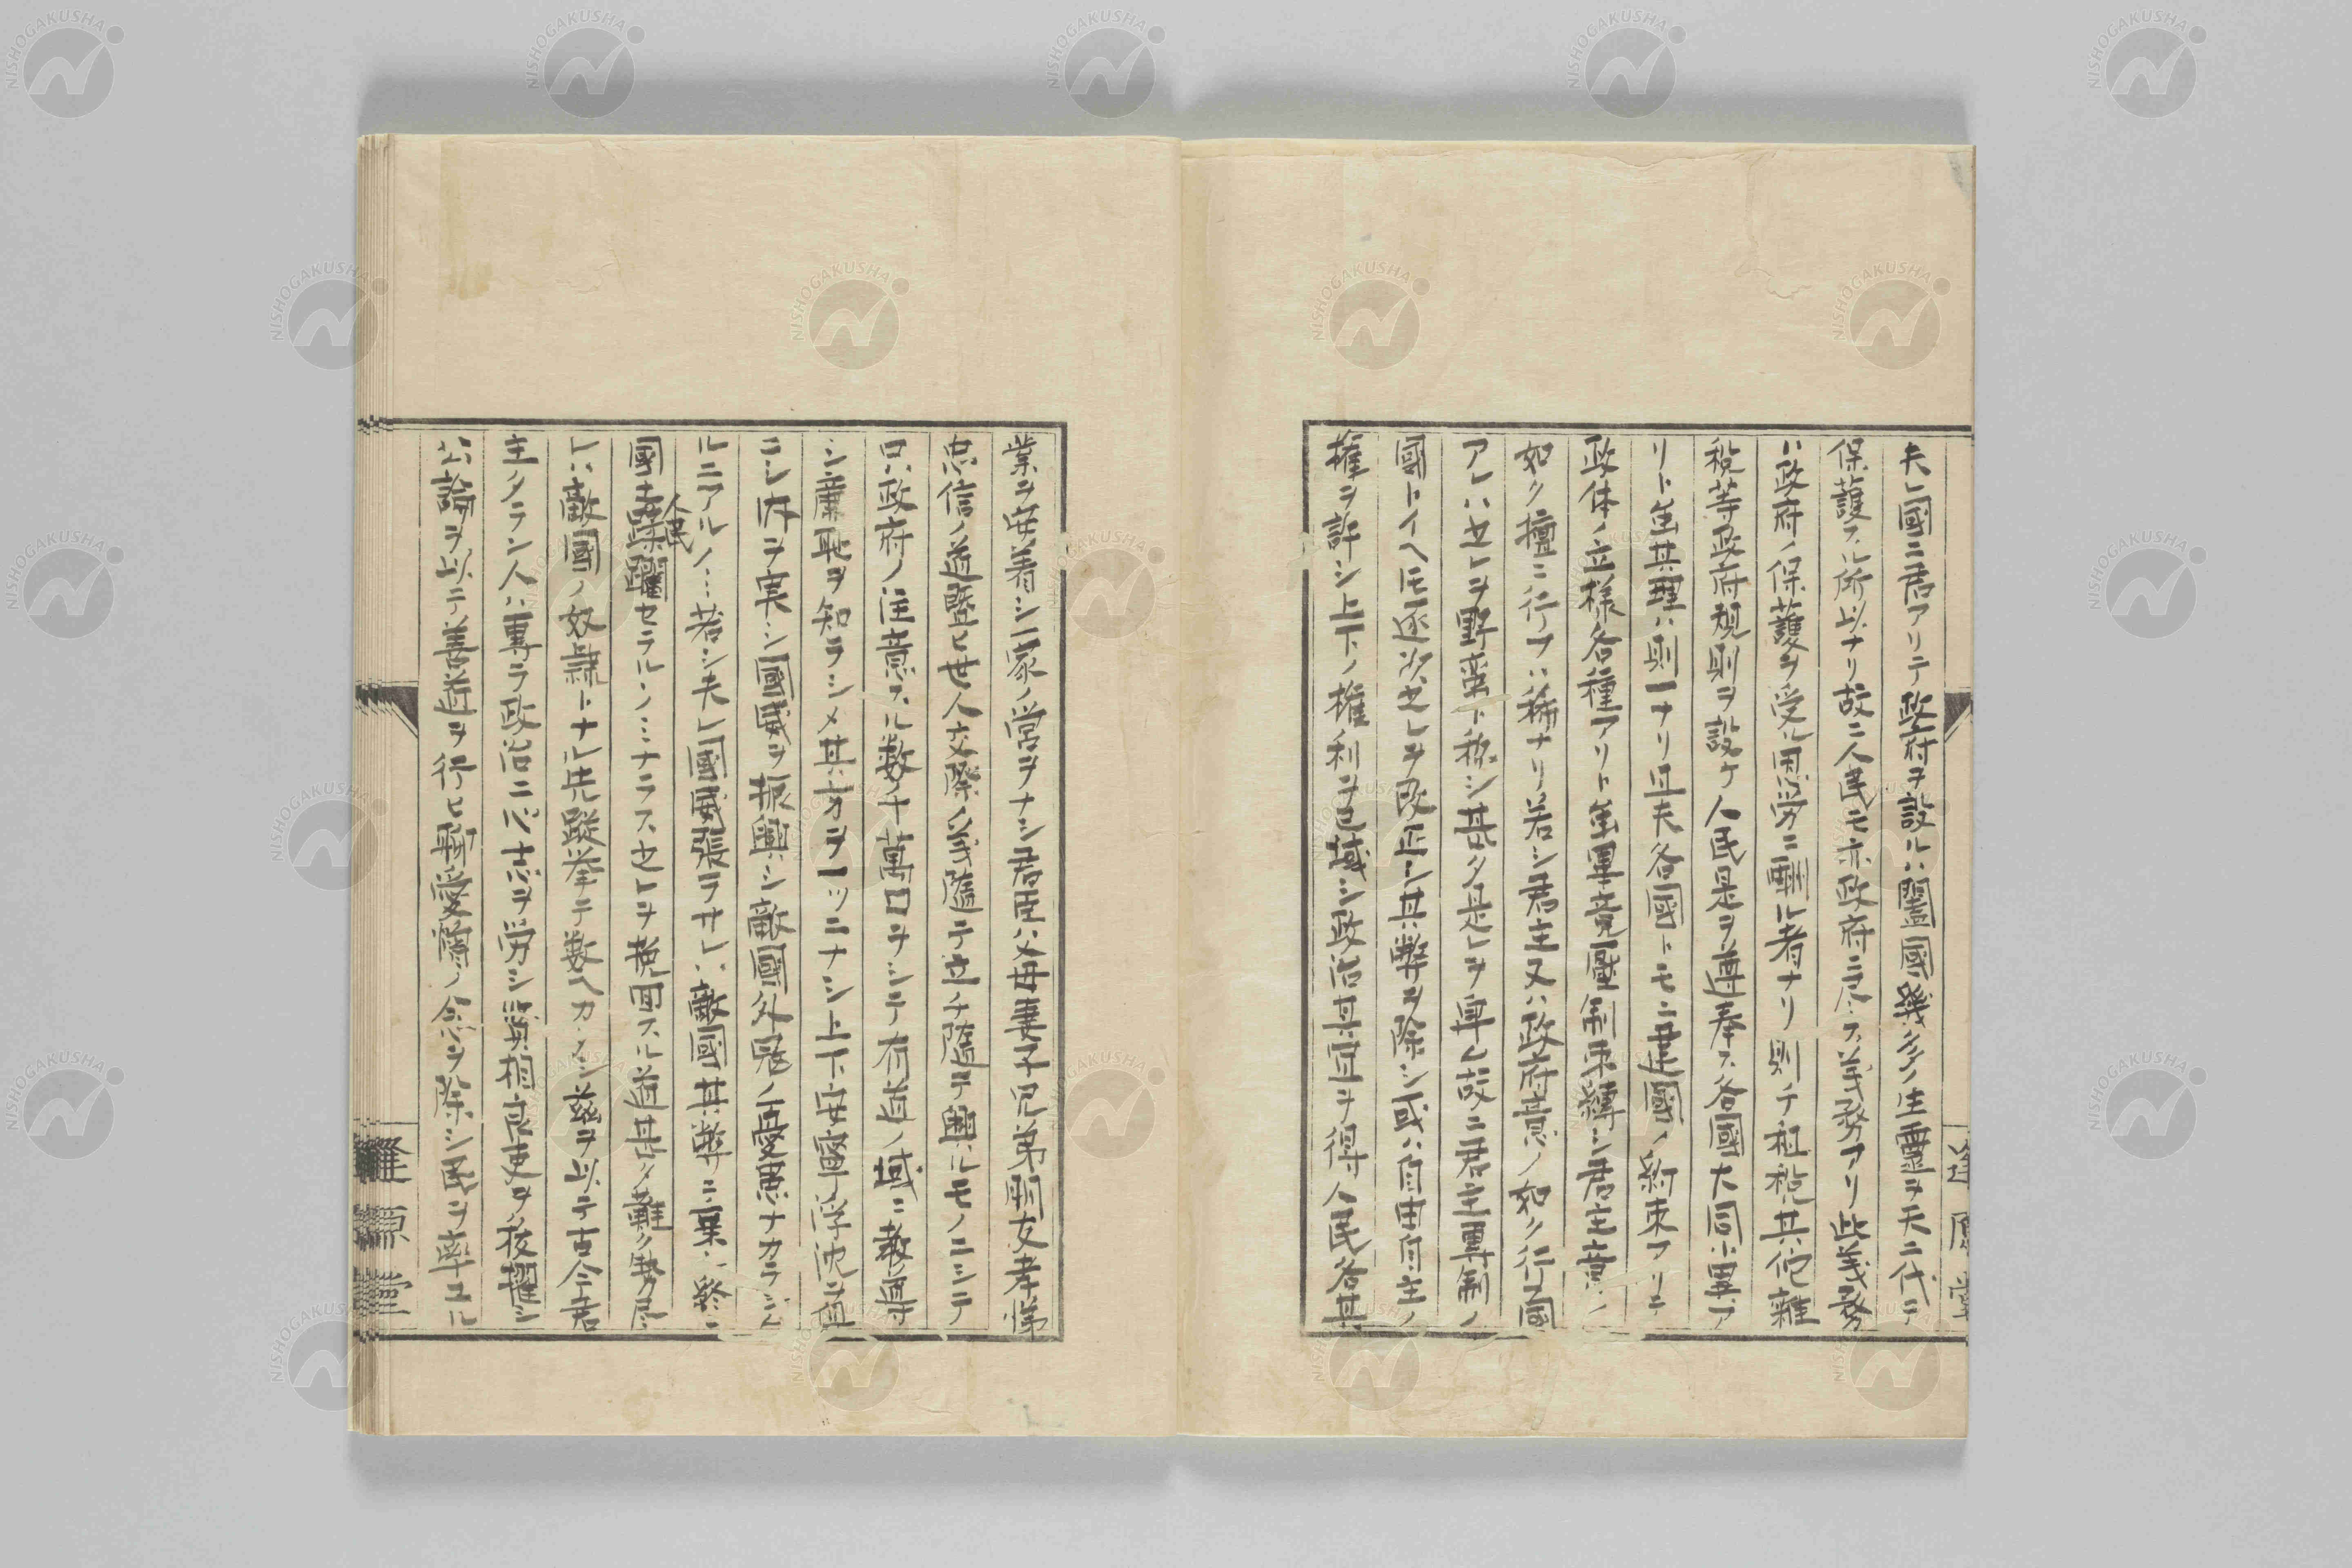 夫レ國ニ君アリテ政府ヲ設ルハ闔國幾多ノ生霊ヲ天ニ代テ
保護スル所以ナリ故ニ人民モ亦政府ニ尽ス義務アリ此義務
ハ政府ノ保護ヲ受ル恩労ニ酬ル者ナリ則チ租税其他雑
税等政府規則ヲ設ケ人民是ヲ遵奉ス各國大同小異ア
リト虽其理ハ則一ナリ且夫各國トモニ建國ノ約束アリテ
政体ノ立様各種アリト虽畢竟圧制束縛シ君主意ノ
如ク擅ニ行フハ稀ナリ若シ君主又ハ政府意ノ如ク行フ國
アレハ世之ヲ野蛮ト称シ甚タ是レヲ卑ム故ニ君主専制ノ
國トイヘモ逐次之レヲ改正シ其弊ヲ除シ或ハ自由自主ノ
権ヲ許シ上下ノ権利ヲ已域シ政治其宜ヲ得人民各其
業ヲ安着シ一家ノ営ヲナシ君臣父母妻子兄弟朋友孝悌
忠信ノ道曁ヒ世人交際ノ義随テ立チ随テ興ルモノニシテ
只政府ノ注意スル数十萬口ヲシテ有道ノ域ニ教導
シ廉恥ヲ知ラシメ其方ヲ一ツニナシ上下安寧浮沈ヲ
ラシ内ヲ実シ國威ヲ振興シ敵國外冦ノ憂患ナカラシム
ルニアルノミ若シ夫レ國威張ラサレハ敵國其弊ニ乗シ終ニ
國土人民蹂躙セラルノミナラス之レヲ挽回スル道甚タ難ク勢尽
レハ敵國ノ奴隷トナル先蹤挙テ数ヘカタシ茲ヲ以テ古今君
主タラン人ハ専ラ政治ニ心志ヲ労シ賢相良吏ヲ抜擢シ
公論ヲ以テ善道ヲ行ヒ聊愛憎ノ念ヲ除シ民ヲ率ユル
逢原堂
逢原堂